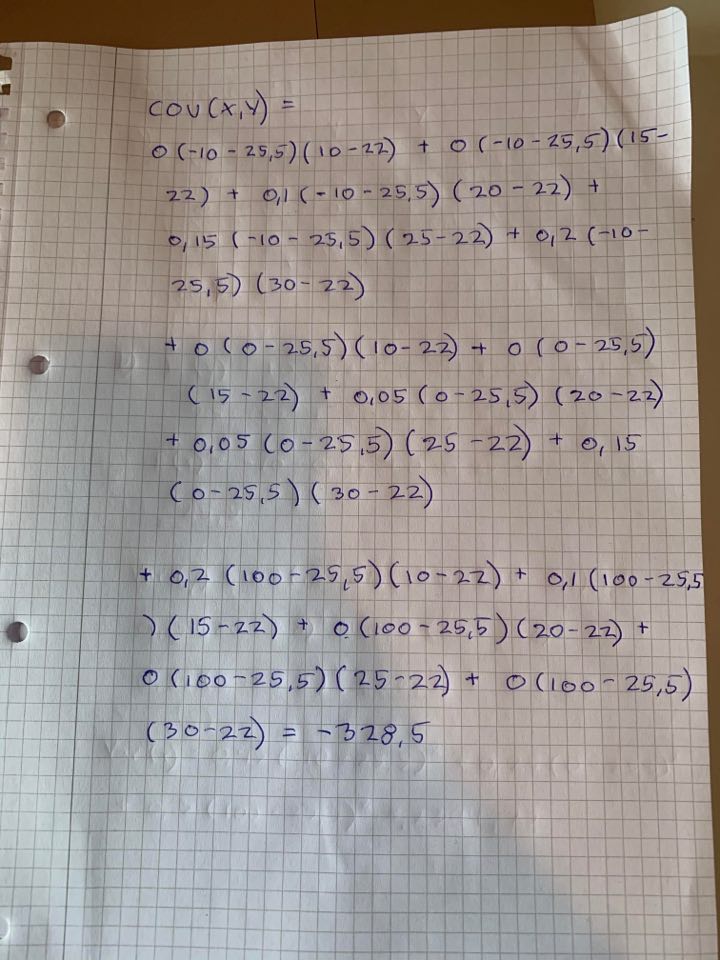 COV(X,Y) =
0 (-10 - 25,5) (10-22) + 0 (-10-25,5) (15-
22) + 0,1 (-10-25,5) (20-22) +
0,15 (-10-25,5) (25-22) + 0,2 (-10-
25,5) (30-22)
+ 0 (0-25,5) (10-22) + 0 (0-25,5)
(15-22) + 0,05 (0-25,5) (20-22)
+ 0,05 (0-25,5) (25-22) + 0,15
(0-25,5) (30-22)
+ 0,2 (100-25,5) (10-22) + 0,1 (100-25,5
) (15-22) + 0 (100-25,5) (20-22) +
0 (100-25,5) (25-22) + 0 (100-25,5)
(30-22) = -328,5